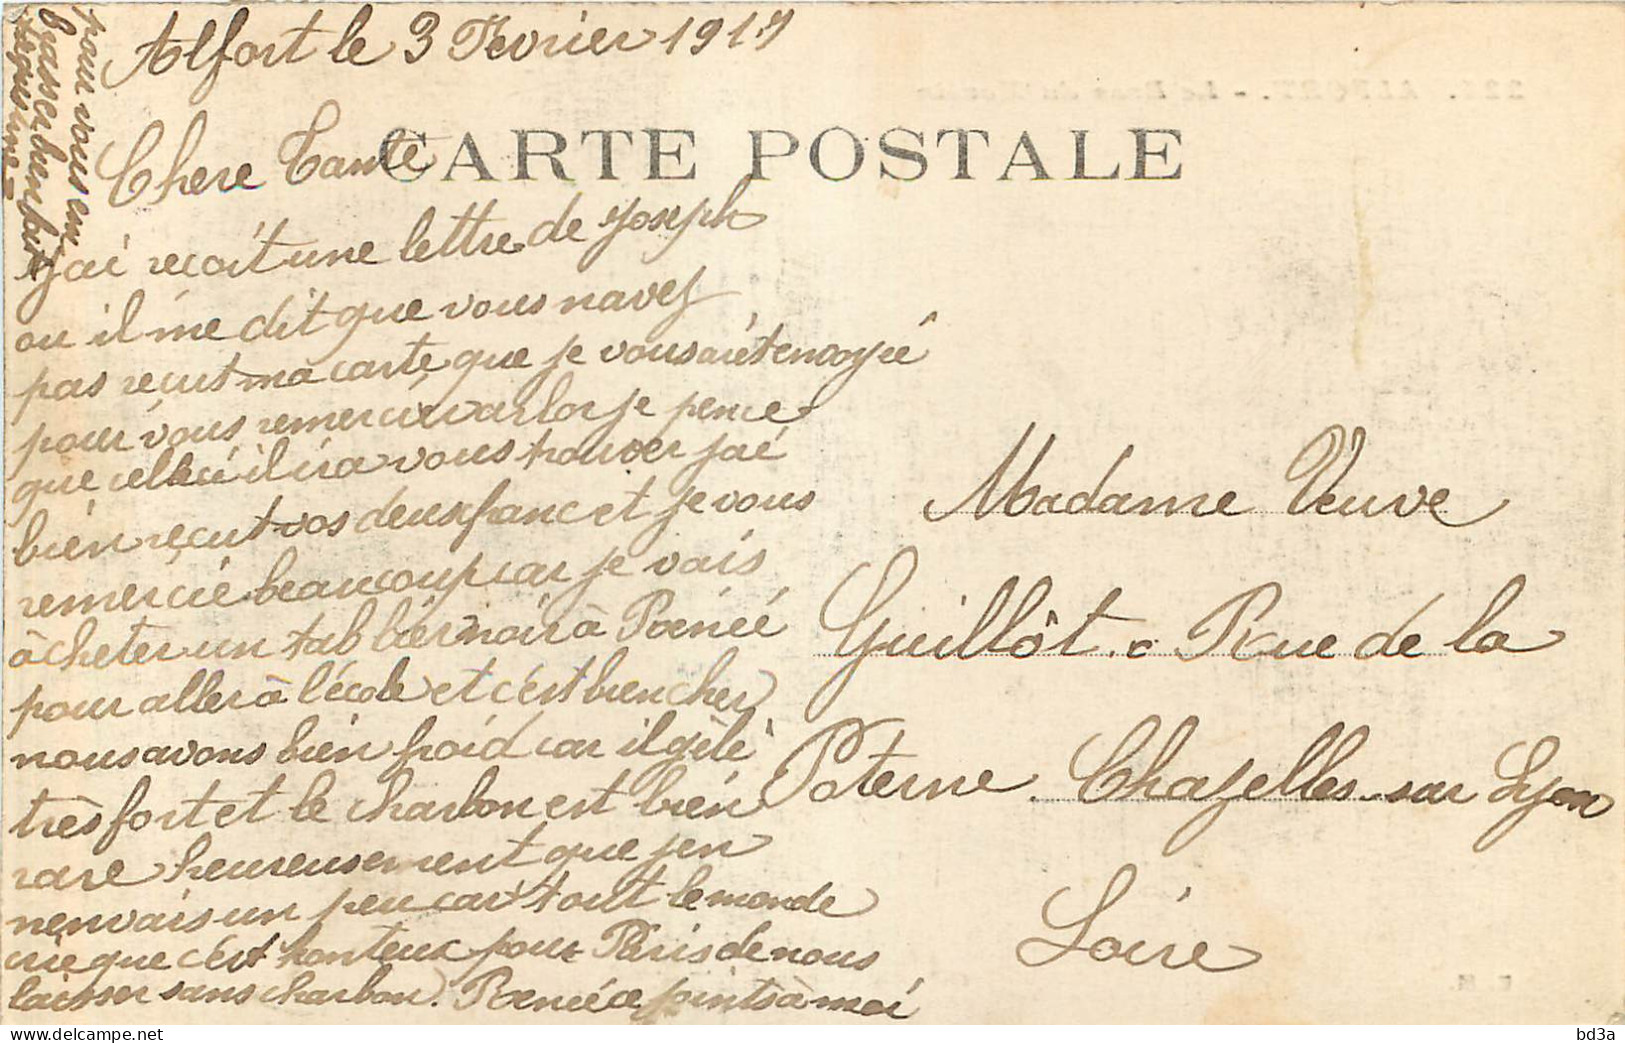 Alfort le 3 Fevrier 1917
CARTE POSTALE
Chere Tante
j'ai reçoit une lettre de Joseph
ou il me dit que vous navez
pas reçut ma carte que je vous aiét envoyié
pour vous remercié varlor je pence
que celleci il ira vous trouver jai
bien reçut vos deux franc et je vous
remercié beaucoup car je vais
àcheter un tablier noir à Renée
pour aller à l'école et c'est bien cher
nous avons bien froid car il gèle
très fort et le charbon est bien
rare heureusement que jen
nenvais un peu car tout le monde
crie que c'est honteux pour Paris de nous
laisser sans charbon. Renée ce joints à moi
pour vous em
brasser bien fort
Madame Veuve
Guillôt. Rue de la
Poterne. Chazelles. sur Lyon
Loire